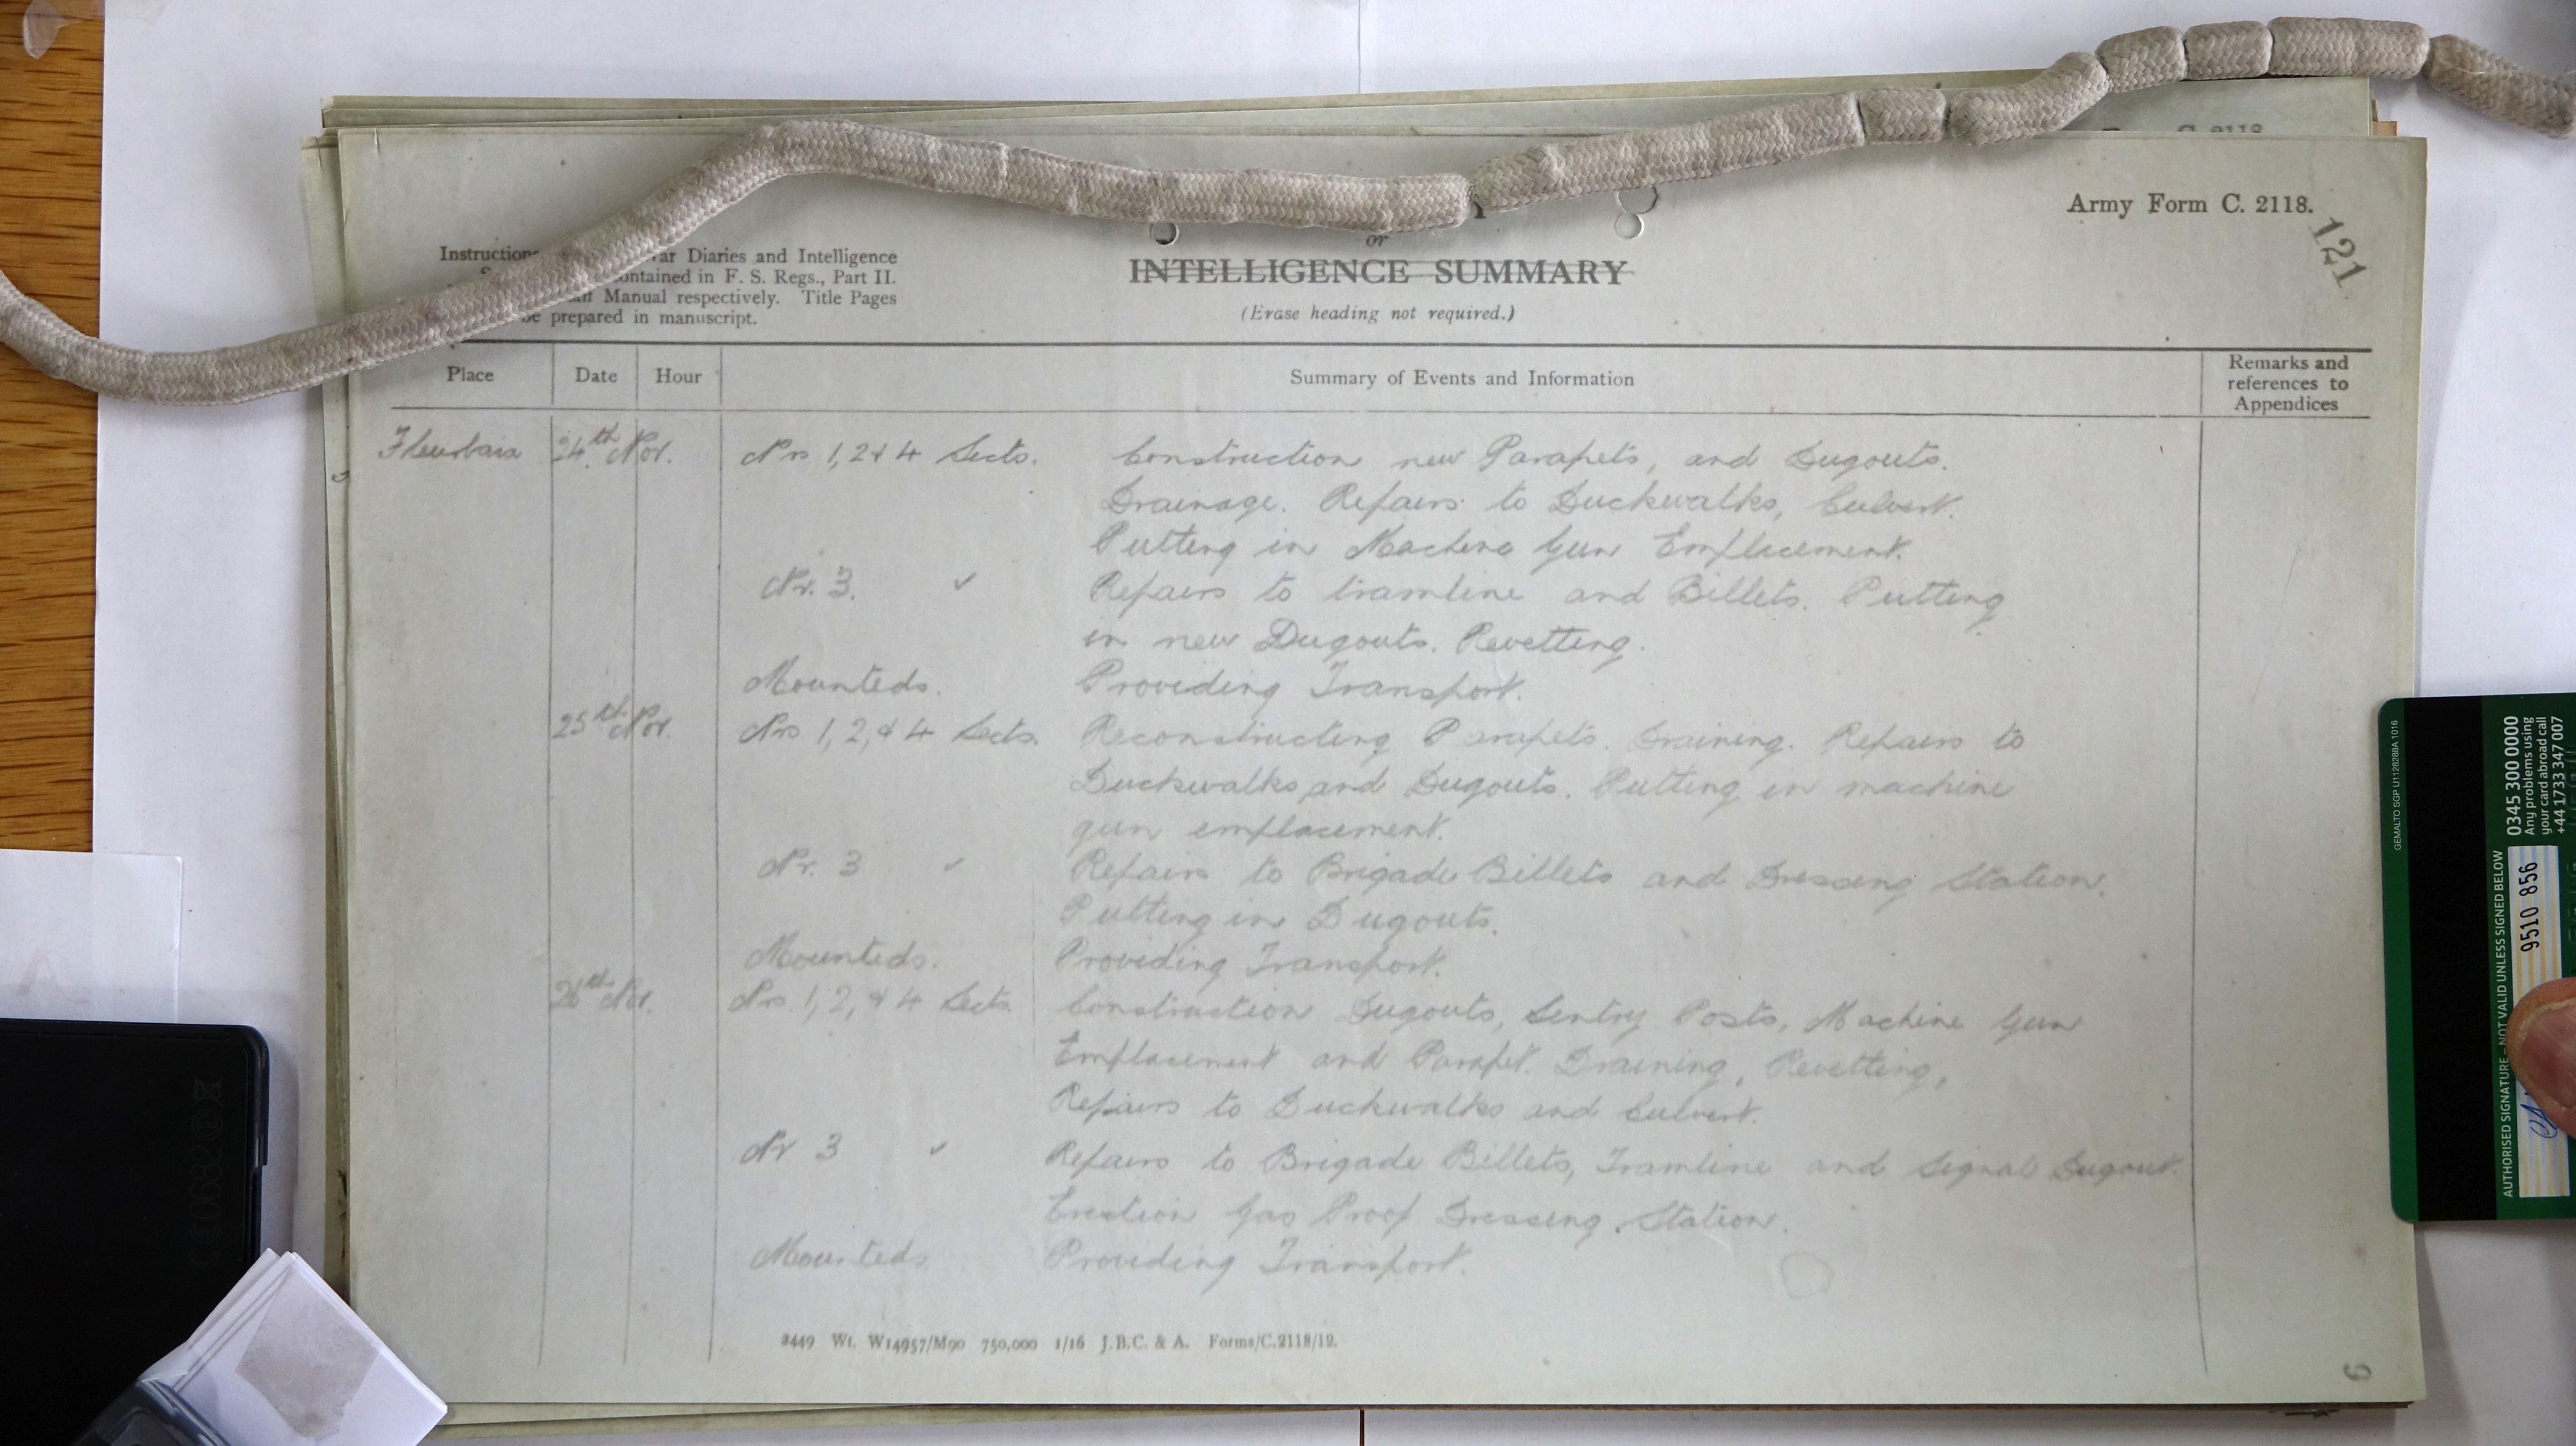 C. 2118
Army Form C. 2118.
121
Instructions War Diaries and Intelligence
contained in F. S. Regs., Part II.
Manual respectively. Title Pages
be prepared in manuscript.
or
INTELLIGENCE SUMMARY
(Erase heading not required.)
Place Date Hour Summary of Events and Information Remarks and references to Appendices
Fleurbaix 24th Nov. Nrs 1, 2 & 4 Sects. Construction new Parapets, and Dugouts.
Drainage. Repairs to Duckwalks, Culvert.
Putting in Machine Gun Emplacement.
Nr. 3. " Repairs to tramline and Billets. Putting
in new Dugouts. Revetting.
Mounteds. Providing Transport.
25th Nov. Nrs 1, 2, & 4 Sects. Reconstructing Parapets. Draining. Repairs to
Duckwalks and Dugouts. Putting in machine
gun emplacement.
Nr. 3 " Repairs to Brigade Billets and Dressing Station.
Putting in Dugouts.
Mounteds. Providing Transport.
26th Nov. Nrs. 1, 2, & 4 Sects. Construction Dugouts, Sentry Posts, Machine Gun
Emplacement and Parapet. Draining, Revetting,
Repairs to Duckwalks and Culvert.
Nr 3 " Repairs to Brigade Billets, Tramline and Signal Dugout.
Erection Gas Proof Dressing Station.
Mounteds Providing Transport.
2449 Wt. W14957/M90 750,000 1/16 J.B.C. & A. Forms/C.2118/12.
GEMALTO SGP U1128288A 1016
0345 300 0000
Any problems using
your card abroad call
+44 1733 347 007
AUTHORISED SIGNATURE – NOT VALID UNLESS SIGNED BELOW
9510 856